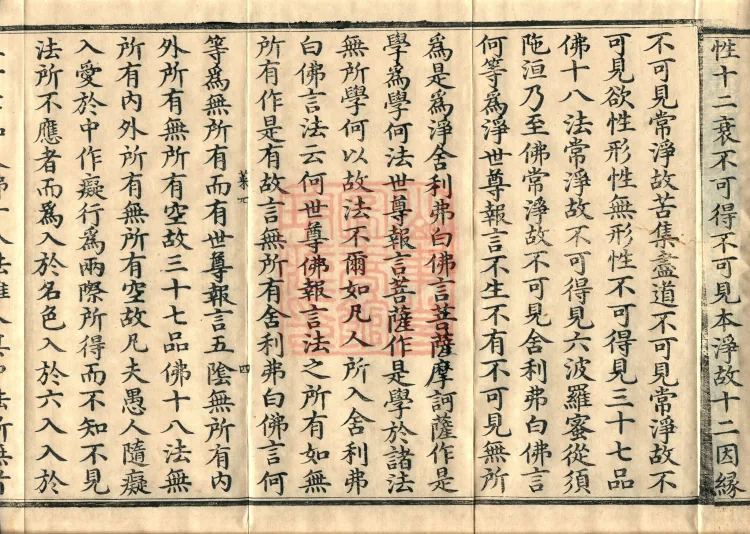 性十二衰不可得不可見本淨故十二因緣
不可見常淨故苦集盡道不可見常淨故不
可見欲性形性無形性不可得見三十七品
佛十八法常淨故不可得見六波羅蜜從須
陁洹乃至佛常淨故不可見舍利弗白佛言
何等爲淨世尊報言不生不有不可見無所
爲是爲淨舍利弗白佛言菩薩摩訶薩作是
學爲學何法世尊報言菩薩作是學於諸法
無所學何以故法不爾如凡人所入舍利弗
白佛言法云何世尊佛報言法之所有如無
所有作是有故言無所有舍利弗白佛言何
菜一
四
等爲無所有而有世尊報言五陰無所有内
外所有無所有空故三十七品佛十八法無
所有内外所有無所有空故凡夫愚人隨癡
入愛於中作癡行爲兩際所得而不知不見
法所不應者而爲入於名色入於六入入於